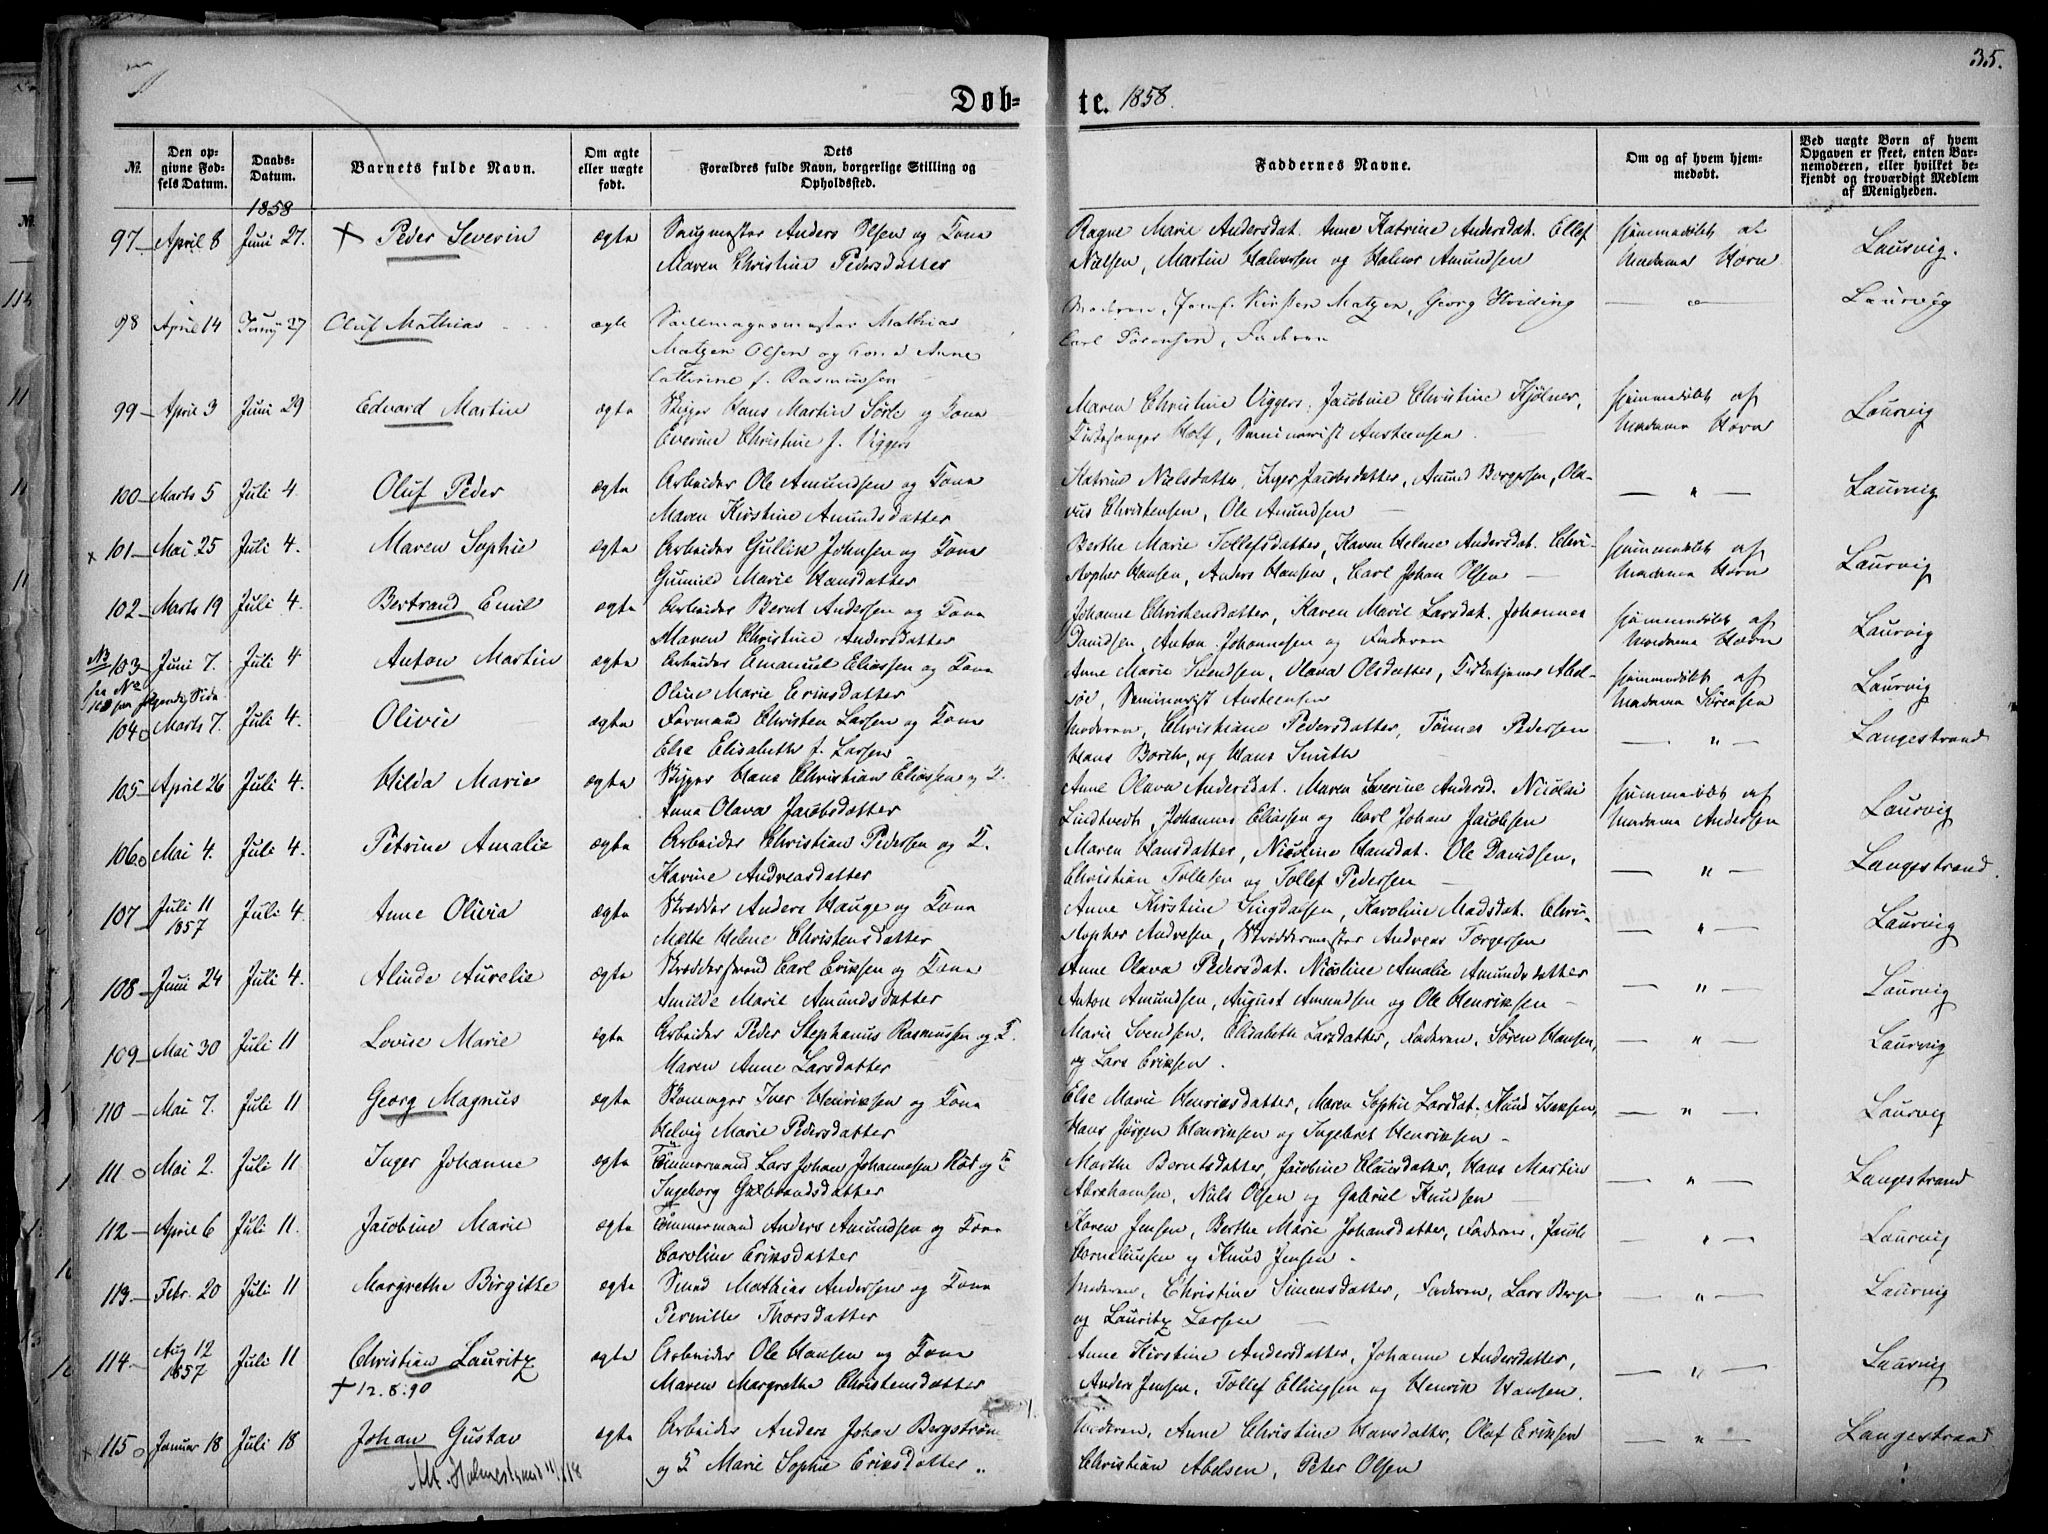 35.
Døb- te. 1858.
№.
Den opgivne Fødsels Datum.
Daabs-Datum.
Barnets fulde Navn.
Om ægte eller uægte født.
Dets Forældres fulde Navn, borgerlige Stilling og Opholdssted.
Faddernes Navne.
Om og af hvem hjemmedøbt.
Ved uægte Børn af hvem Opgaven er skeet, enten Barnemoderen, eller hvilket bekjendt og troværdigt Medlem af Menigheden.
1858
97 April 8 Juni 27. + Peder Severin ægte Anders Olsen og Kone Ragne Marie Andersdat. Anne Katrine Andersdat. Ellef Hjemmedøbt af Laurvig.
Maren Christine Pedersdatter Nielsen, Martin Halvorsen og Halvor Amundsen Madame Horn
98 April 14 Juny 27 Oluf Mathias ægte Seilmagermester Mathias Moderen, Jomf. Kirsten Matzen, Georg Hviding — " — Laurvig
Matzen Olsen og Kone Anne Carl Sörensen, Faderen
Cathrine f. Rasmussen
99 April 3 Juni 29 Edvard Martin ægte Hans Martin og Kone Maren Christine Viggers, Jacobine Christine Kjølner, Hjemmedøbt af Laurvig
Everine Christine f. Viggers Kirkesanger Holf, Seminarist Austeensen Madame Horn
100 Marts 5 Juli 4. Oluf Peder ægte Arbeider Ole Amundsen og Kone Katrine Nielsdatter, Inger Jacobsdatter, Amund Borgersen, Ola- — " — Laurvig
Maren Kirstine Amundsdatter vus Christensen, Ole Amundsen
× 101 Mai 25 Juli 4. Maren Sophie ægte Arbeider Gullik Johnsen og Kone Berthe Marie Tollefsdatter, Karen Helene Andersdat. Chri- Hjemmedøbt af Laurvig
Gunnild Marie Hansdatter stopher Hansen, Anders Hansen, Carl Johan Olsen Madame Horn
102 Marts 19 Juli 4. Bertrand Emil ægte Arbeider Bernt Andersen og Kone Johanne Christensdatter, Karen Marie Larsdat. Johannes Hjemmedøbt af Laurvig
Maren Christine Andersdatter Davidsen, Anton Johannesen og Faderen Madame Horn
103 Juni 7. Juli 4 Anton Martin ægte Arbeider Emanuel Eliassen og Kone Anne Marie Svendsen, Olava Olsdatter, Kirketjener Abel- Hjemmedøbt af Laurvig
Oline Marie Eriksdatter Seminarist Austeensen Madame Sörensen
104 Marts 7. Juli 4. Olivie ægte Formand Christen Larsen og Kone Moderen, Christiane Pedersdatter, Tönnes Pedersen — " — Langestrand
Else Elisabeth f. Larsen Hans Borch, og Hans Smith
105 April 26 Juli 4. Hilda Marie ægte Hans Christian Eliassen og K. Anne Olava Andersdat. Maren Severine Andersd. Nicolai Hjemmedøbt af Laurvig
Anna Olava Jacobsdatter Lindtvedt, Johannes Eliassen og Carl Johan Jacobsen Madame Andersen
106 Mai 4. Juli 4. Petrine Amalie ægte Arbeider Christian Pedersen og K. Maren Hansdatter, Nicoline Hansdat. Ole Davidsen, — " — Langestrand.
Karine Andreasdatter Christian Tollefsen og Tollef Pedersen
107 Juli 11 1857 Juli 4. Anne Olivia ægte Skrædder Anders Hauge og Kone Anne Kirstine Lingdalsen, Karoline Madsdat. Chri- — " — Laurvig
Mette Helene Christensdatter stopher Andresen, Skræddermester Andreas Torgersen
108 Juni 24 Juli 4. Alinde Aurelie ægte Skræddersvend Carl Eriksen og Kone Anne Olava Pedersdat. Nicoline Amalie Amundsdatter — " — Laurvig
Smilde Marie Amundsdatter Anton Amundsen, August Amundsen og Ole Henriksen
109 Mai 30 Juli 11 Lovise Marie ægte Arbeider Peder Stephanus Rasmussen og K. Marie Svendsen, Elisabeth Larsdatter, Faderen, Sören Hansen, — " — Laurvig
Maren Anne Larsdatter og Lars Eriksen.
110 Mai 7. Juli 11 Georg Magnus ægte Skomager Iver Henriksen og Kone Else Marie Henriksdatter, Maren Sophie Larsdat. Knud Isaksen, — " — Laurvig
Helvig Marie Pedersdatter Hans Jörgen Henriksen og Ingebret Henriksen
111 Mai 2. Juli 11 Inger Johanne ægte Tömmermand Lars Johan Johannesen og K. Marthe Berntsdatter, Jacobine Clausdatter, Hans Martin — " — Langestrand
Ingeborg Gulbrandsdatter Abrahamsen, Niels Olsen og Gabriel Knudsen
112 April 6 Juli 11. Jacobine Marie ægte Tömmermand Anders Amundsen og Kone Karen Jensen, Berthe Marie Johansdatter, Faderen, Jacob — " — Laurvig
Caroline Eriksdatter Corneliussen og Knud Jensen
113 Febr. 20 Juli 11 Margrethe Birgitte ægte Smed Mathias Andersen og Kone Moderen, Christine Simensdatter, Faderen, Lars Berge — " — Laurvig
Pernille Thorsdatter og Lauritz Larsen
114 Aug 12 1857 Juli 11 Christian Lauritz ægte Arbeider Ole Hansen og Kone Anne Kirstine Andersdatter, Johanne Andersdatter, — " — Laurvig
+ 12.8.90 Maren Margrethe Christensdatter Anders Jensen, Tollef Ellingsen og Henrik Hansen.
× 115 Januar 18 Juli 18 Johan Gustav ægte Arbeider Anders Johan Bergström Moderen, Anne Christine Hansdatter, Olaf Eriksen — " — Langestrand
Att. Holmestrand og K Marie Sophie Eriksdatter Christian Abelsen, Peter Olsen